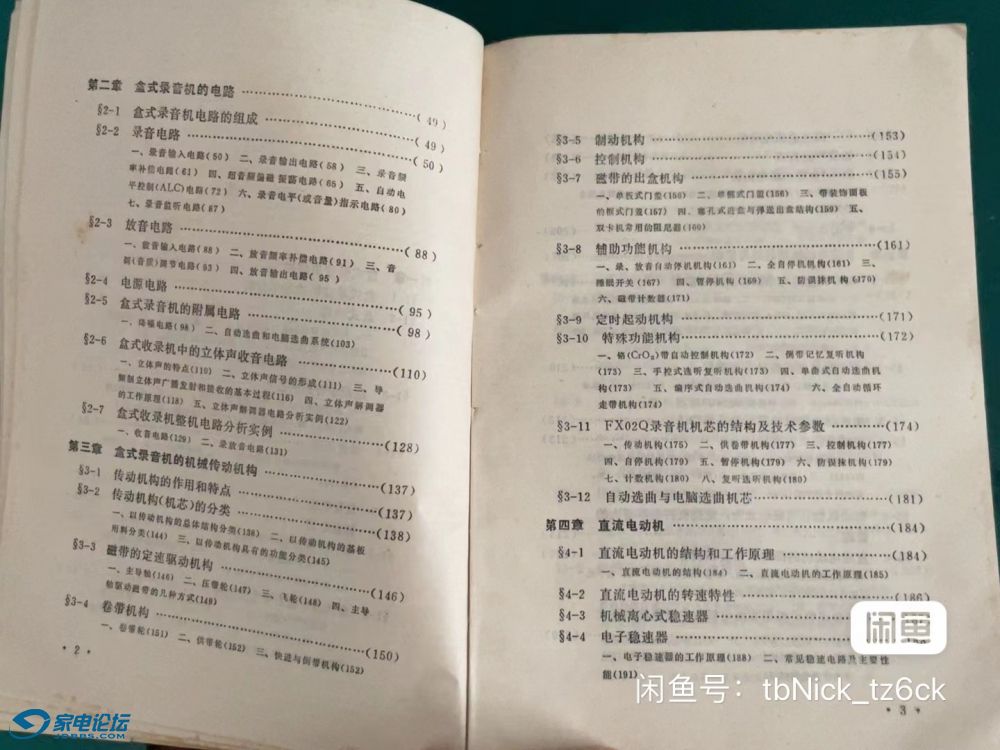 第二章 盒式录音机的电路 ……( 49 )
§2-1 盒式录音机电路的组成 ……( 49 )
§2-2 录音电路 ……( 50 )
一、录音输入电路(50) 二、录音输出电路(58) 三、录音频
率补偿电路(61) 四、超音频偏磁振荡电路(65) 五、自动电
平控制(ALC)电路(72) 六、录音电平(或音量)指示电路(80)
七、录音监听电路(87)
§2-3 放音电路 ……( 88 )
一、放音输入电路(88) 二、放音频率补偿电路(91) 三、音
调(音质)调节电路(93) 四、放音输出电路(95)
§2-4 电源电路 ……( 95 )
§2-5 盒式录音机的附属电路 ……( 98 )
一、降噪电路(98) 二、自动选曲和电脑选曲系统(103)
§2-6 盒式收录机中的立体声收音电路 ……(110)
一、立体声的特点(110) 二、立体声信号的形成(111) 三、导
频制立体声广播发射和接收的基本过程(116) 四、立体声解调器
的工作原理(118) 五、立体声解调器电路分析实例(122)
§2-7 盒式收录机整机电路分析实例 ……(128)
一、收音电路(129) 二、录放音电路(131)
第三章 盒式录音机的机械传动机构 ……(137)
§3-1 传动机构的作用和特点 ……(137)
§3-2 传动机构(机芯)的分类 ……(138)
一、以传动机构的总体结构分类(138) 二、以传动机构的基板
用料分类(144) 三、以传动机构具有的功能分类(145)
§3-3 磁带的定速驱动机构 ……(146)
一、主导轴(146) 二、压带轮(147) 三、飞轮(148) 四、主导
轴驱动磁带的几种方式(149)
§3-4 卷带机构 ……(150)
一、卷带轮(151) 二、供带轮(152) 三、快进与倒带机构(152)
• 2 •
§3-5 制动机构 ……(153)
§3-6 控制机构 ……(154)
§3-7 磁带的出盒机构 ……(155)
一、单板式门盖(156) 二、单框式门盖(156) 三、带装饰面板
的框式门盖(157) 四、塞孔式进盒与弹送出盒结构(159) 五、
双卡机常用的阻尼器(160)
§3-8 辅助功能机构 ……(161)
一、录、放音自动停机机构(161) 二、全自停机机构(163) 三、
睡眠开关(167) 四、暂停机构(169) 五、防误抹机构(370)
六、磁带计数器(171)
§3-9 定时起动机构 ……(171)
§3-10 特殊功能机构 ……(172)
一、铬(CrO₂)带自动控制机构(172) 二、倒带记忆复听机构
(173) 三、手控式选听复听机构(173) 四、单曲式自动选曲机
构(173) 五、编序式自动选曲机构(174) 六、全自动循环
走带机构(174)
§3-11 FX02Q录音机机芯的结构及技术参数 ……(174)
一、传动机构(175) 二、供卷带机构(177) 三、控制机构(177)
四、自停机构(179) 五、暂停机构(179) 六、防误抹机构(179)
七、计数机构(180) 八、复听选听机构(180)
§3-12 自动选曲与电脑选曲机芯 ……(181)
第四章 直流电动机 ……(184)
§4-1 直流电动机的结构和工作原理 ……(184)
一、直流电动机的结构(184) 二、直流电动机的工作原理(185)
§4-2 直流电动机的转速特性 ……(186)
§4-3 机械离心式稳速器 ……
§4-4 电子稳速器 ……
一、电子稳速器的工作原理(188) 二、常见稳速电路及主要性
能(191)
• 3 •
闲鱼
闲鱼号：tbNick_tz6ck
家电论坛
JDBBS.COM